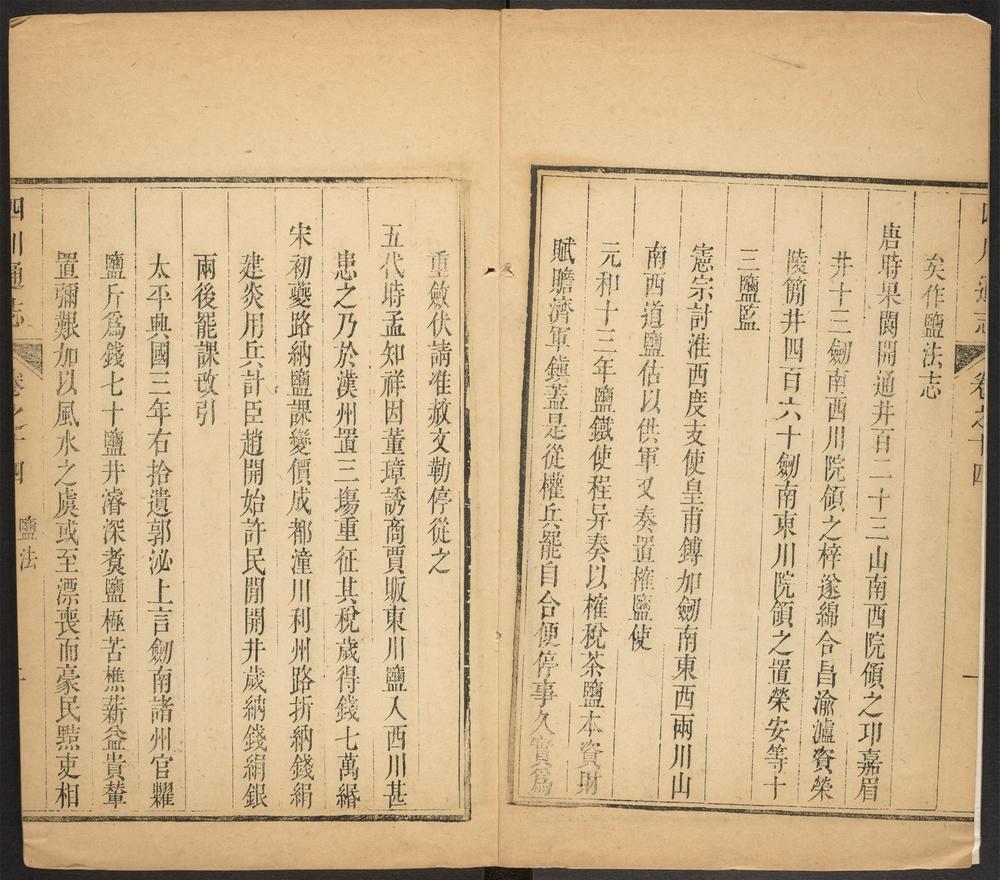 四川通志 卷之十四 一
矣作鹽法志
唐時果閬開通井百二十三山南西院領之邛嘉眉
井十三劍南西川院領之梓遂綿合昌渝瀘資榮
陵簡井四百六十劍南東川院領之置榮安等十
三鹽監
憲宗討淮西度支使皇甫鎛加劍南東西兩川山
南西道鹽估以供軍又奏置榷鹽使
元和十三年鹽鐵使程异奏以榷稅茶鹽本資財
賦贍濟軍鎮蓋是從權兵罷自合便停事久實爲
重斂伏請准赦文勒停從之
五代時孟知祥因董璋誘商賈販東川鹽入西川甚
患之乃於漢州置三塲重征其稅歲得錢七萬緡
宋初夔路納鹽課變價成都潼川利州路折納錢絹
建炎用兵計臣趙開始許民間開井歲納錢絹銀
兩後罷課改引
太平興國三年右拾遺郭泌上言劍南諸州官糶
鹽斤爲錢七十鹽井濬深煑鹽極苦樵薪益貴輦
置彌艱加以風水之虞或至漂喪而豪民黠吏相
四川通志 卷之十四 鹽法